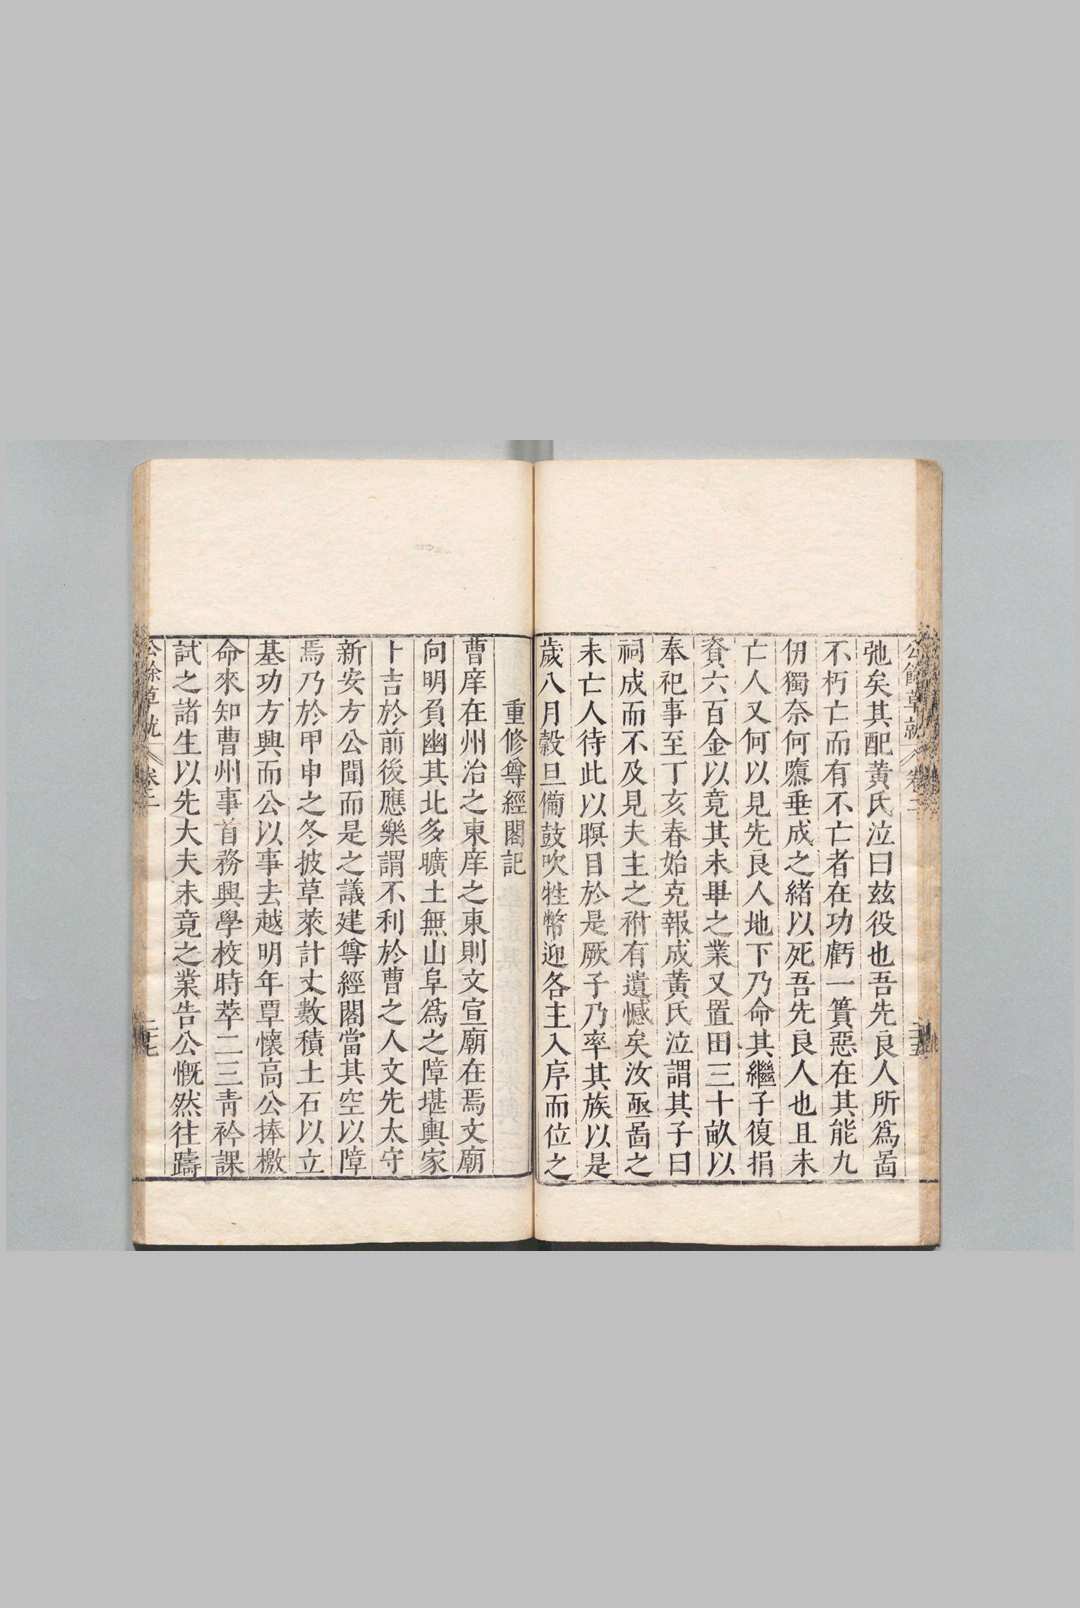 公餘草就
卷二
弛矣其配黃氏泣曰兹役也吾先良人所爲啚
不朽亡而有不亡者在功虧一簣惡在其能九
仞獨奈何隳垂成之緒以死吾先良人也且未
亡人又何以見先良人地下乃命其繼子復捐
資六百金以竟其未畢之業又置田三十畝以
奉祀事至丁亥春始克報成黃氏泣謂其子曰
祠成而不及見夫主之祔有遺憾矣汝亟啚之
未亡人待此以瞑目於是厥子乃率其族以是
歲八月榖旦僃鼓吹牲幣迎各主入序而位之
重修尊經閣記
曹庠在州治之東庠之東則文宣廟在焉文廟
向明負幽其北多曠土無山阜爲之障堪輿家
卜吉於前後應樂謂不利於曹之人文先太守
新安方公聞而是之議建尊經閣當其空以障
焉乃於甲申之冬披草萊計丈數積土石以立
基功方興而公以事去越明年覃懷高公捧檄
命來知曹州事首務興學校時萃二三靑衿課
試之諸生以先大夫未竟之業告公慨然往躊
公餘草就
卷二
二七